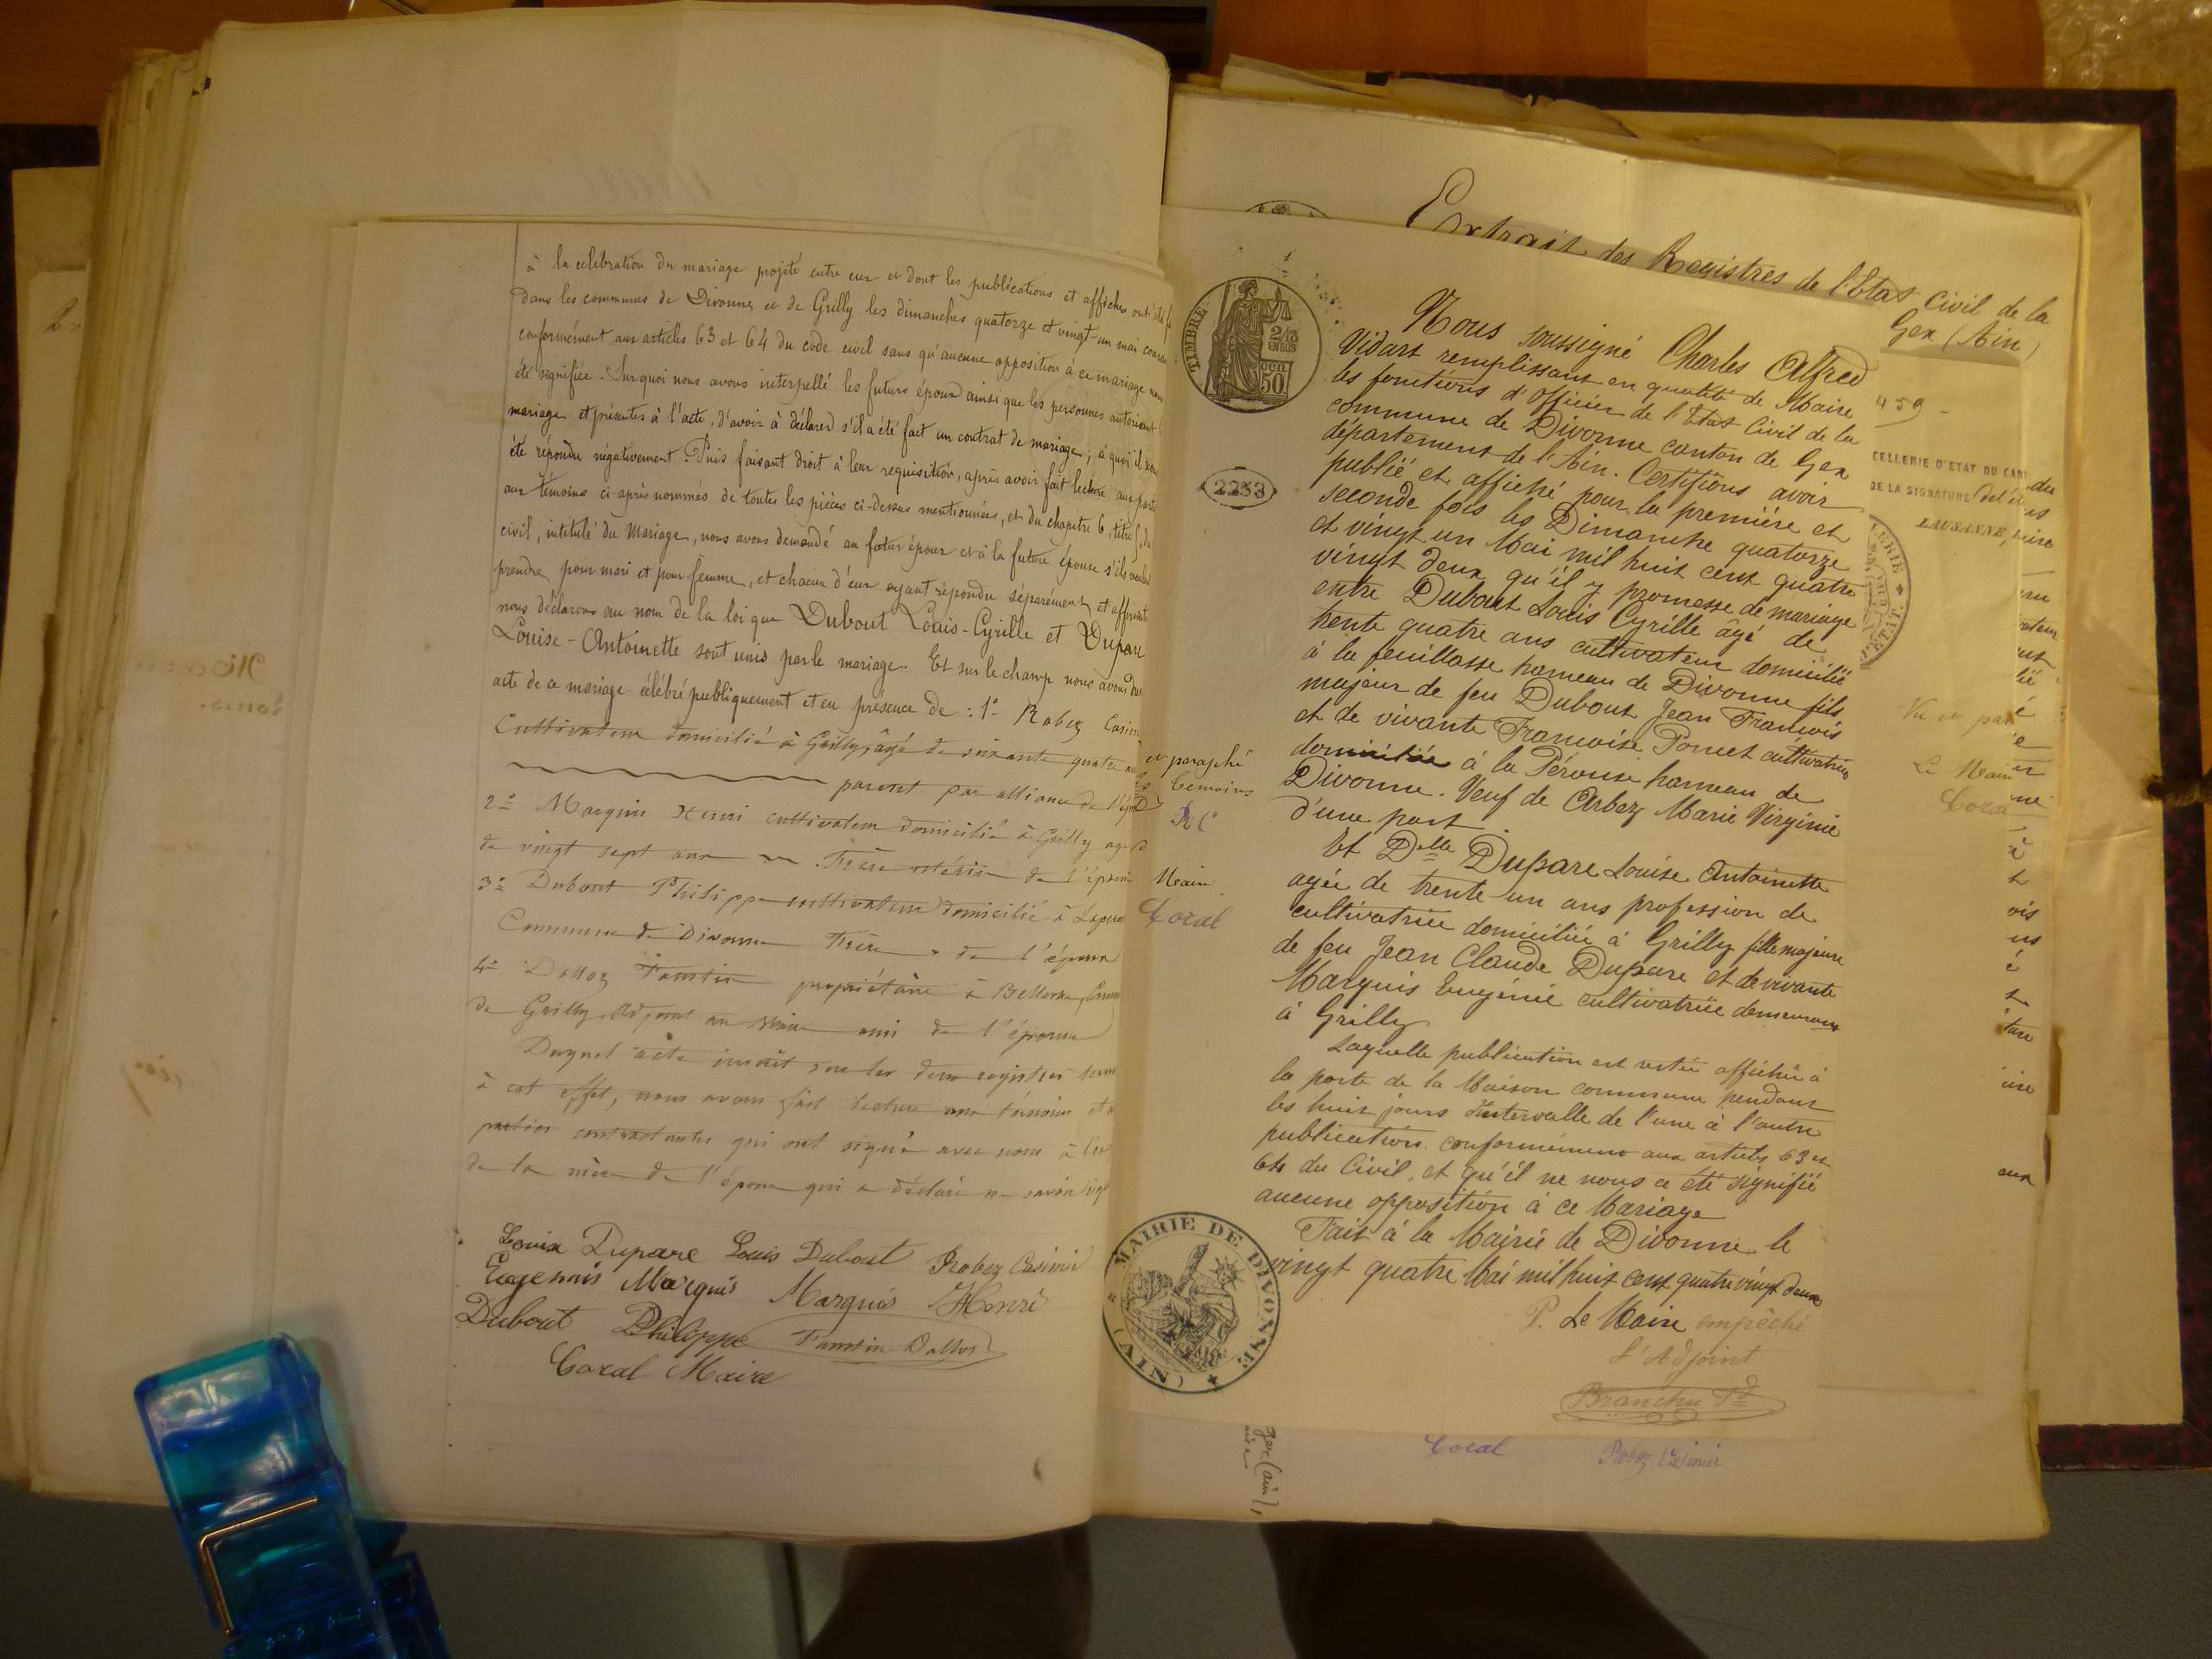 à la célébration du mariage projeté entre eux et dont les publications et affiches ont été
dans les communes de Divonne et de Grilly les dimanches quatorze et vingt-un mai
conformément aux articles 63 et 64 du code civil sans qu'aucune opposition à ce mariage nous
été signifiée. Sur quoi nous avons interpellé les futurs époux ainsi que les personnes autorisant
mariage et présentes à l'acte, d'avoir à déclarer s'il a été fait un contrat de mariage; à quoi il nous
été répondu négativement. Puis faisant droit à leur requisition, après avoir fait lecture aux
aux témoins ci-après nommés de toutes les pièces ci-dessus mentionnées, et du chapitre 6, titre
civil, intitulé du Mariage, nous avons demandé au futur époux et à la future épouse s'ils
prendre pour mari et pour femme, et chacun d'eux ayant répondu séparément et
nous déclarons au nom de la loi que Dubout Louis-Cyrille et Dupare
Louise-Antoinette sont unis par le mariage. Et sur le champ nous avons
acte de ce mariage célébré publiquement et en présence de : 1° Robez
Cultivateur domicilié à Grilly, âgé de soixante quatre
parent par alliance de
2° Marquis Henri cultivateur domicilié à Grilly agé
de vingt sept ans Frère utérin de l'épouse
3° Dubout Philippe cultivateur domicilié à
Commune de Divonne Frère de l'époux
4° Dalloz Faustin propriétaire à
de Grilly, Adjoint au Maire ami de l'épouse
Duquel acte inscrit sur les deux registres
à cet effet, nous avons fait lecture aux témoins et
parties contractantes qui ont signé avec nous à
de la mère de l'époux qui a déclaré ne savoir
Louise Dupare Louis Dubout Robez Casimir
Eugennis Marquis Marquis Henri
Dubout Philippe Faustin Dalloz
Coral Maire
et paraphé
témoins
RC
Maire
Coral
Extrait des Registres de l'Etat Civil de la
Gex (Ain)
TIMBRE
2/10
EN SUS
50
CEN
2253
Nous soussigné Charles Alfred
Vidart remplissant en qualité de Maire
les fonctions d'Officier de l'Etat Civil de la
commune de Divonne canton de Gex
département de l'Ain. Certifions avoir
publié et affiché pour la première et
seconde fois les Dimanche quatorze
et vingt un Mai mil huit cent quatre
vingt deux qu'il y promesse de mariage
entre Dubout Louis Cyrille âgé de
trente quatre ans cultivateur domicilié
à la feuillasse hameau de Divonne fils
majeur de feu Dubout Jean François
et de vivante Françoise Poncet cultivatrice
domiciliée à la Pérouse hameau de
Divonne. Veuf de Arbez Marie Virginie
d'une part
Et Delle Dupare Louise Antoinette
agée de trente un ans profession de
cultivatrice domiciliée à Grilly fille majeure
de feu Jean Claude Dupare et de vivante
Marquis Eugénie cultivatrice demeurant
à Grilly
Laquelle publication est restée affichée à
la porte de la Maison commune pendant
les huit jours d'intervalle de l'une à l'autre
publication conformément aux articles 63 et
64 du Civil, et qu'il ne nous a été signifié
aucune opposition à ce Mariage
Fait à la Mairie de Divonne le
vingt quatre Mai mil huit cent quatre vingt deux
P. Le Maire empêché
L'Adjoint
Branchu
MAIRIE DE DIVONNE
(AIN)
459
CELLERIE D'ETAT DU CANT
DE LA SIGNATURE
LAUSANNE,
Vu et par
Le Maire
Coral
Coral
Robez Casimir
gex (ain),